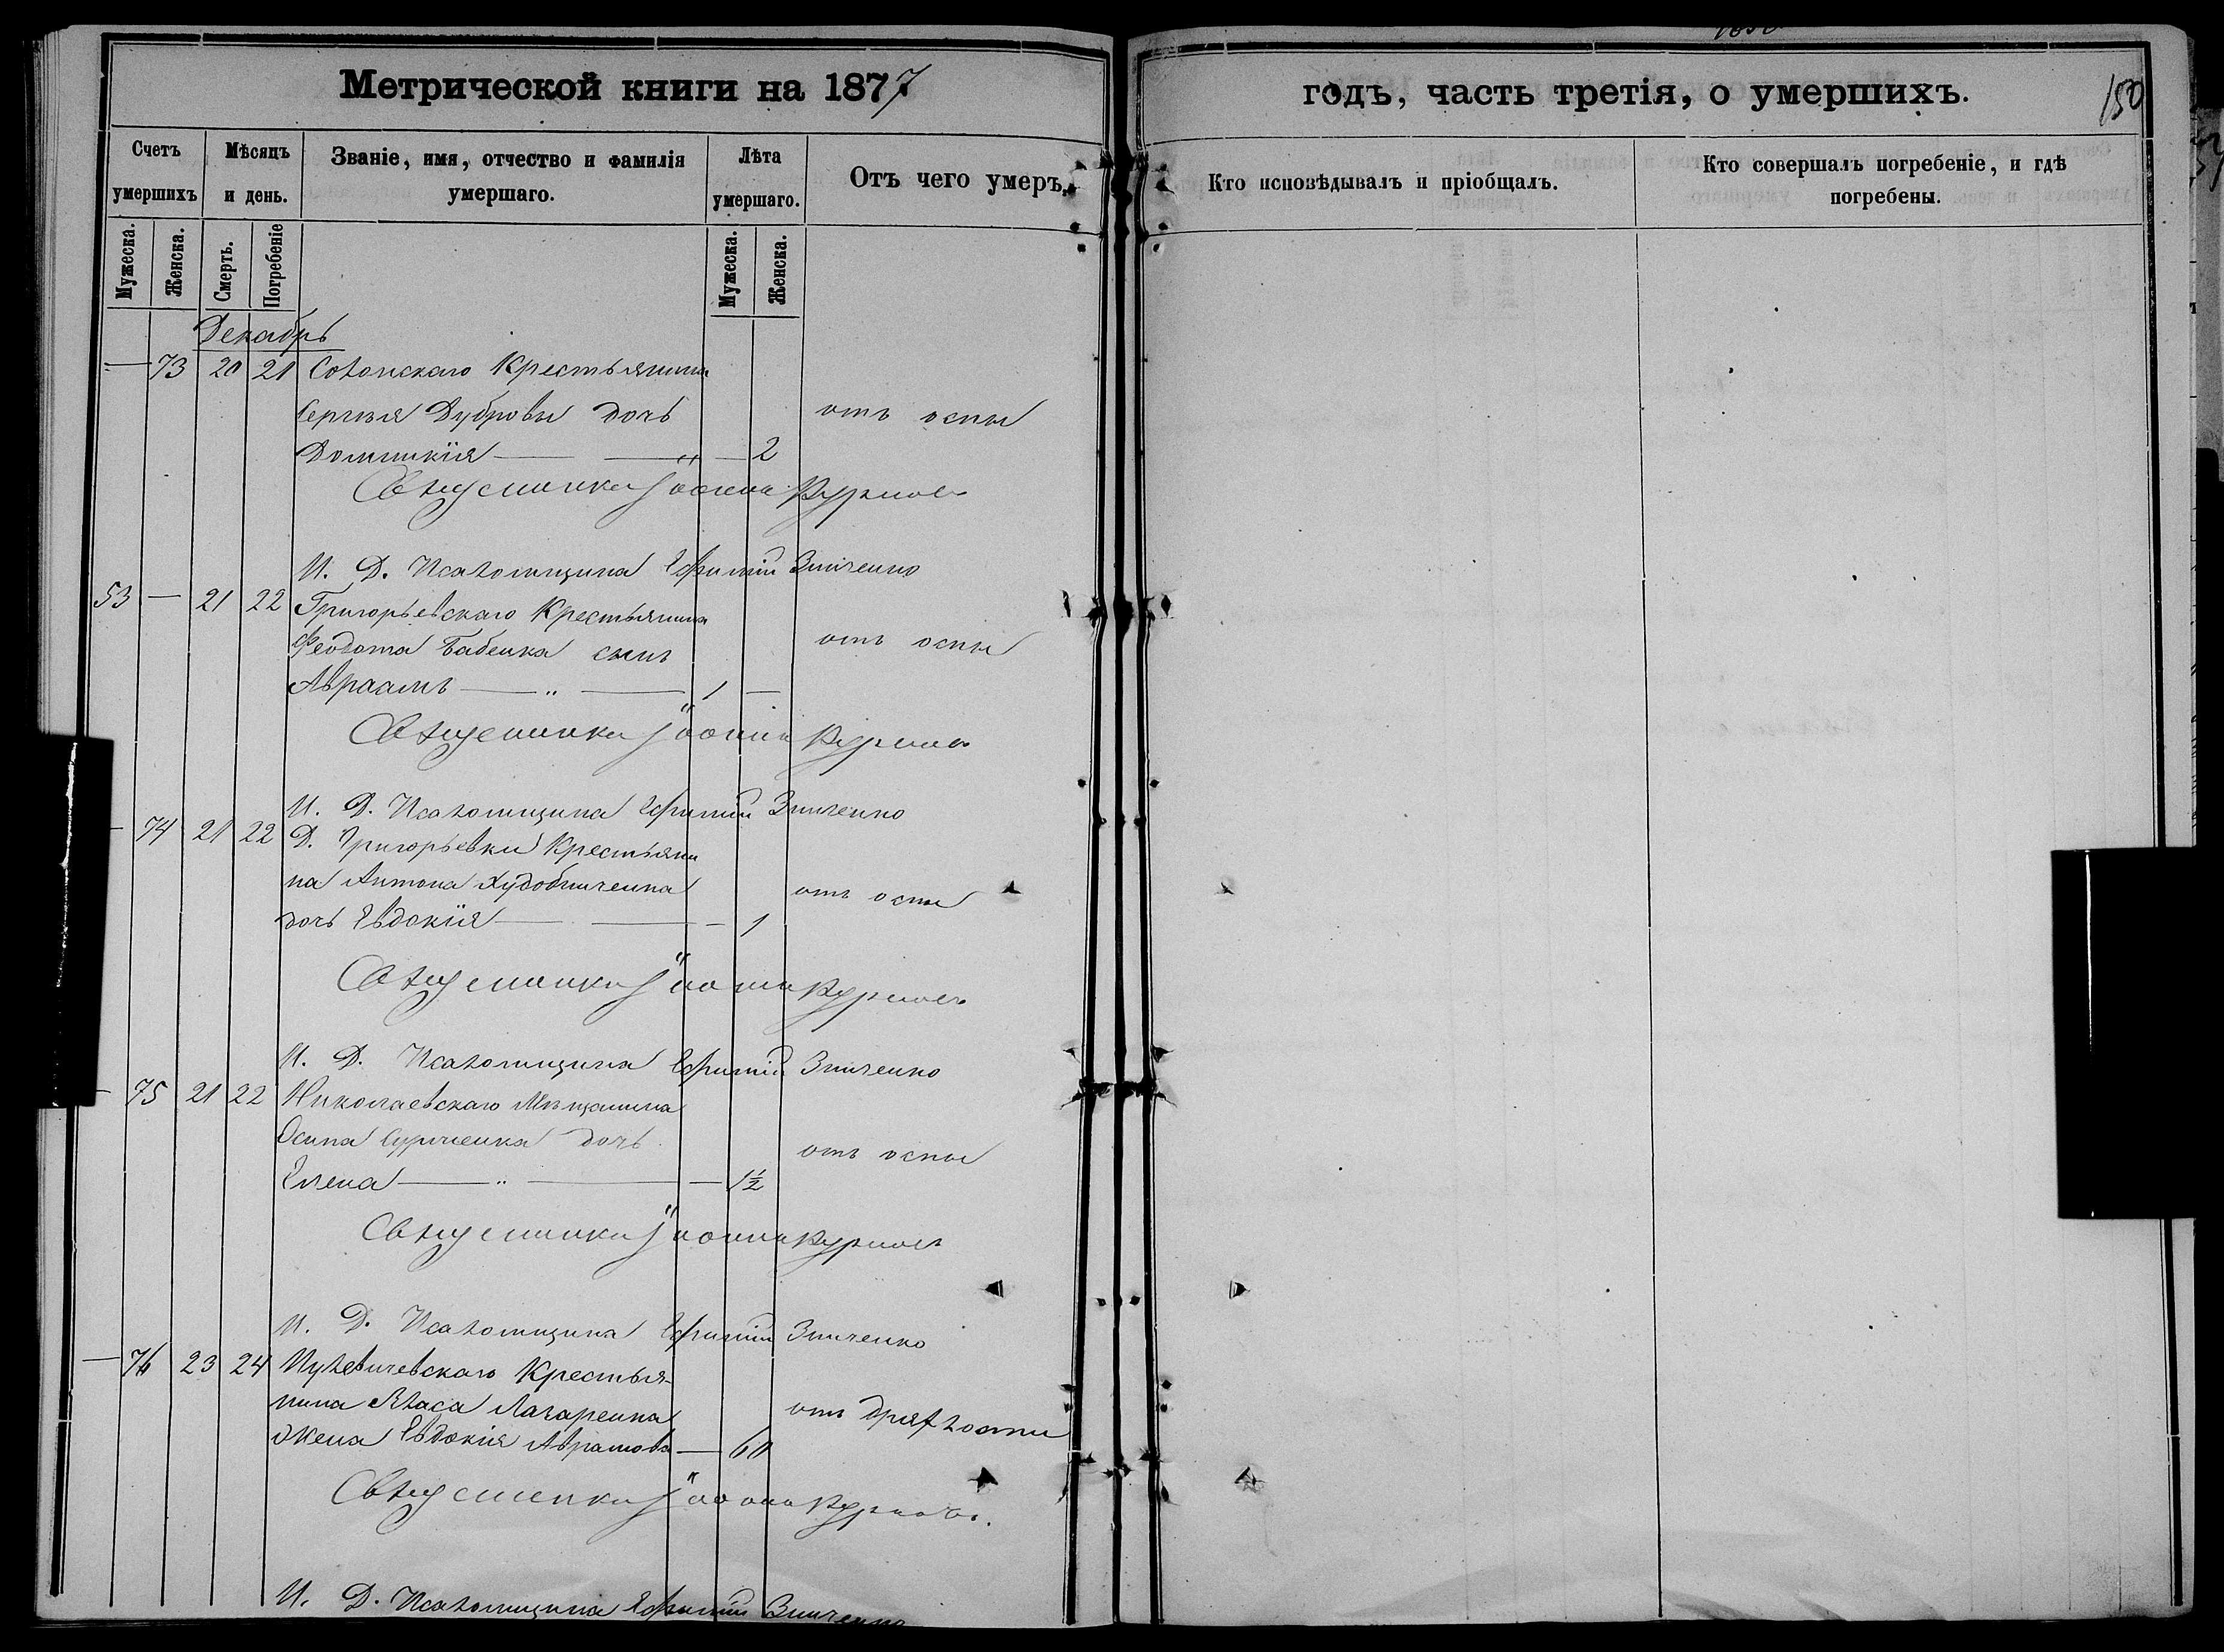 Метрической книги на 1877
годъ, часть третія, о умершихъ.
150
Счетъ умершихъ
Мѣсяцъ и день.
Званіе, имя, отчество и фамилія умершаго.
Лѣта умершаго.
Отъ чего умеръ.
Кто исповѣдывалъ и пріобщалъ.
Кто совершалъ погребеніе, и гдѣ погребены.
Мужеска.
Женска.
Смерть.
Погребеніе
Мужеска.
Женска.
Декабрь
— 73 20 21 Крестьянина
Сергѣя Дубровы дочь отъ оспы
Домникія — " — 2
Священникъ Іоаннъ
И. Д. Псаломщика Ефимій Зинченко
53 — 21 22 Григорьевскаго Крестьянина
Феодота Бабенка сынъ отъ оспы
Авраамъ — " — 1 —
Священникъ Іоаннъ
И. Д. Псаломщика Ефимій Зинченко
— 74 21 22 Д. Григорьевки Крестьяни
на Антона Худобниченка отъ оспы
дочь Евдокія — 1
Священникъ Іоаннъ
И. Д. Псаломщика Ефимій Зинченко
— 75 21 22 Николаевскаго Мѣщанина
Осипа дочь отъ оспы
Елена — " — 1½
Священникъ Іоаннъ
И. Д. Псаломщика Ефимій Зинченко
— 76 23 24 Крестья-
нина Власа Лазаренка отъ дряхлости
жена Евдокія Аврамова — 60
Священникъ Іоаннъ
И. Д. Псаломщика Ефимій Зинченко